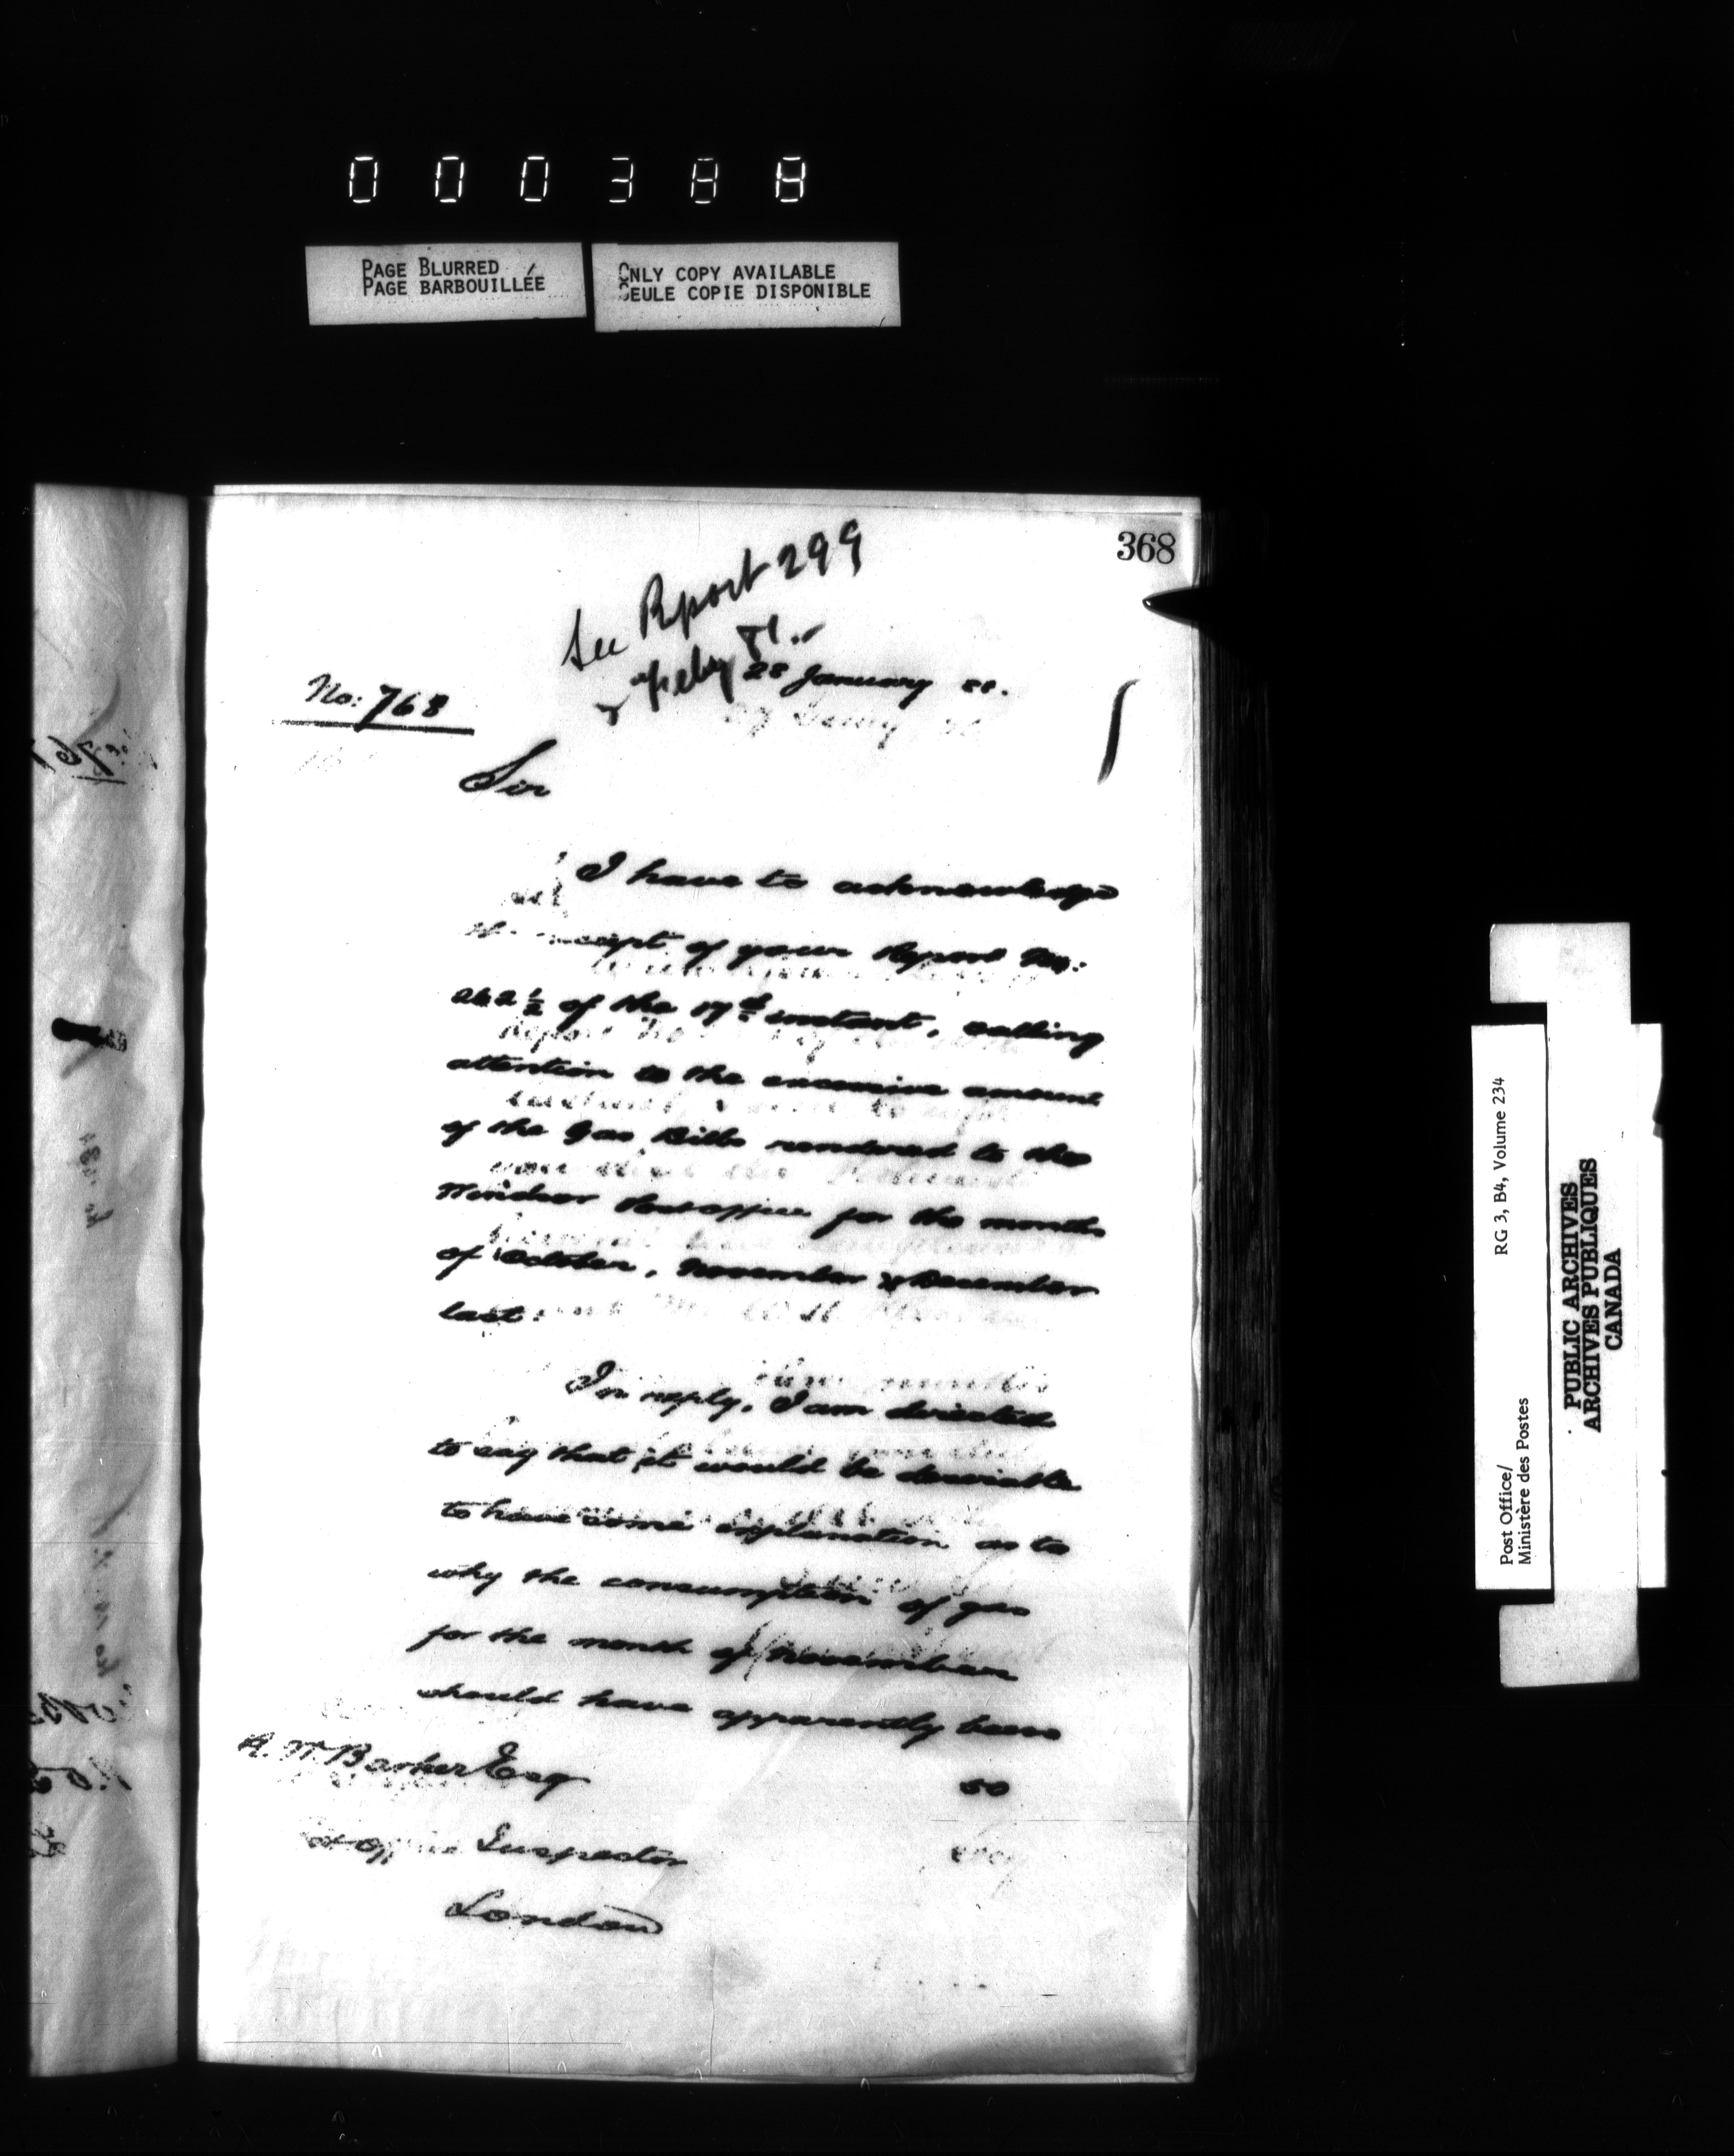 000388
PAGE BLURRED
PAGE BARBOUILLÉE
ONLY COPY AVAILABLE
SEULE COPIE DISPONIBLE
368
See Report 299
of Feby 81
28 January 88.
No: 768
Sir
I have to acknowledge
the receipt of your Report No:
of the 17th instant, calling
attention to the excessive amount
of the Gas Bills rendered to the
Windsor Post office for the months
of October, November & December
last:
In reply, I am directed
to say that it would be desirable
to have some explanation as to
why the consumption of gas
for the month of November
should have apparently been
so
R. W. Barker Esq
Post Office Inspector
London
Post Office/
Ministère des Postes
RG 3, B4, Volume 234
PUBLIC ARCHIVES
ARCHIVES PUBLIQUES
CANADA